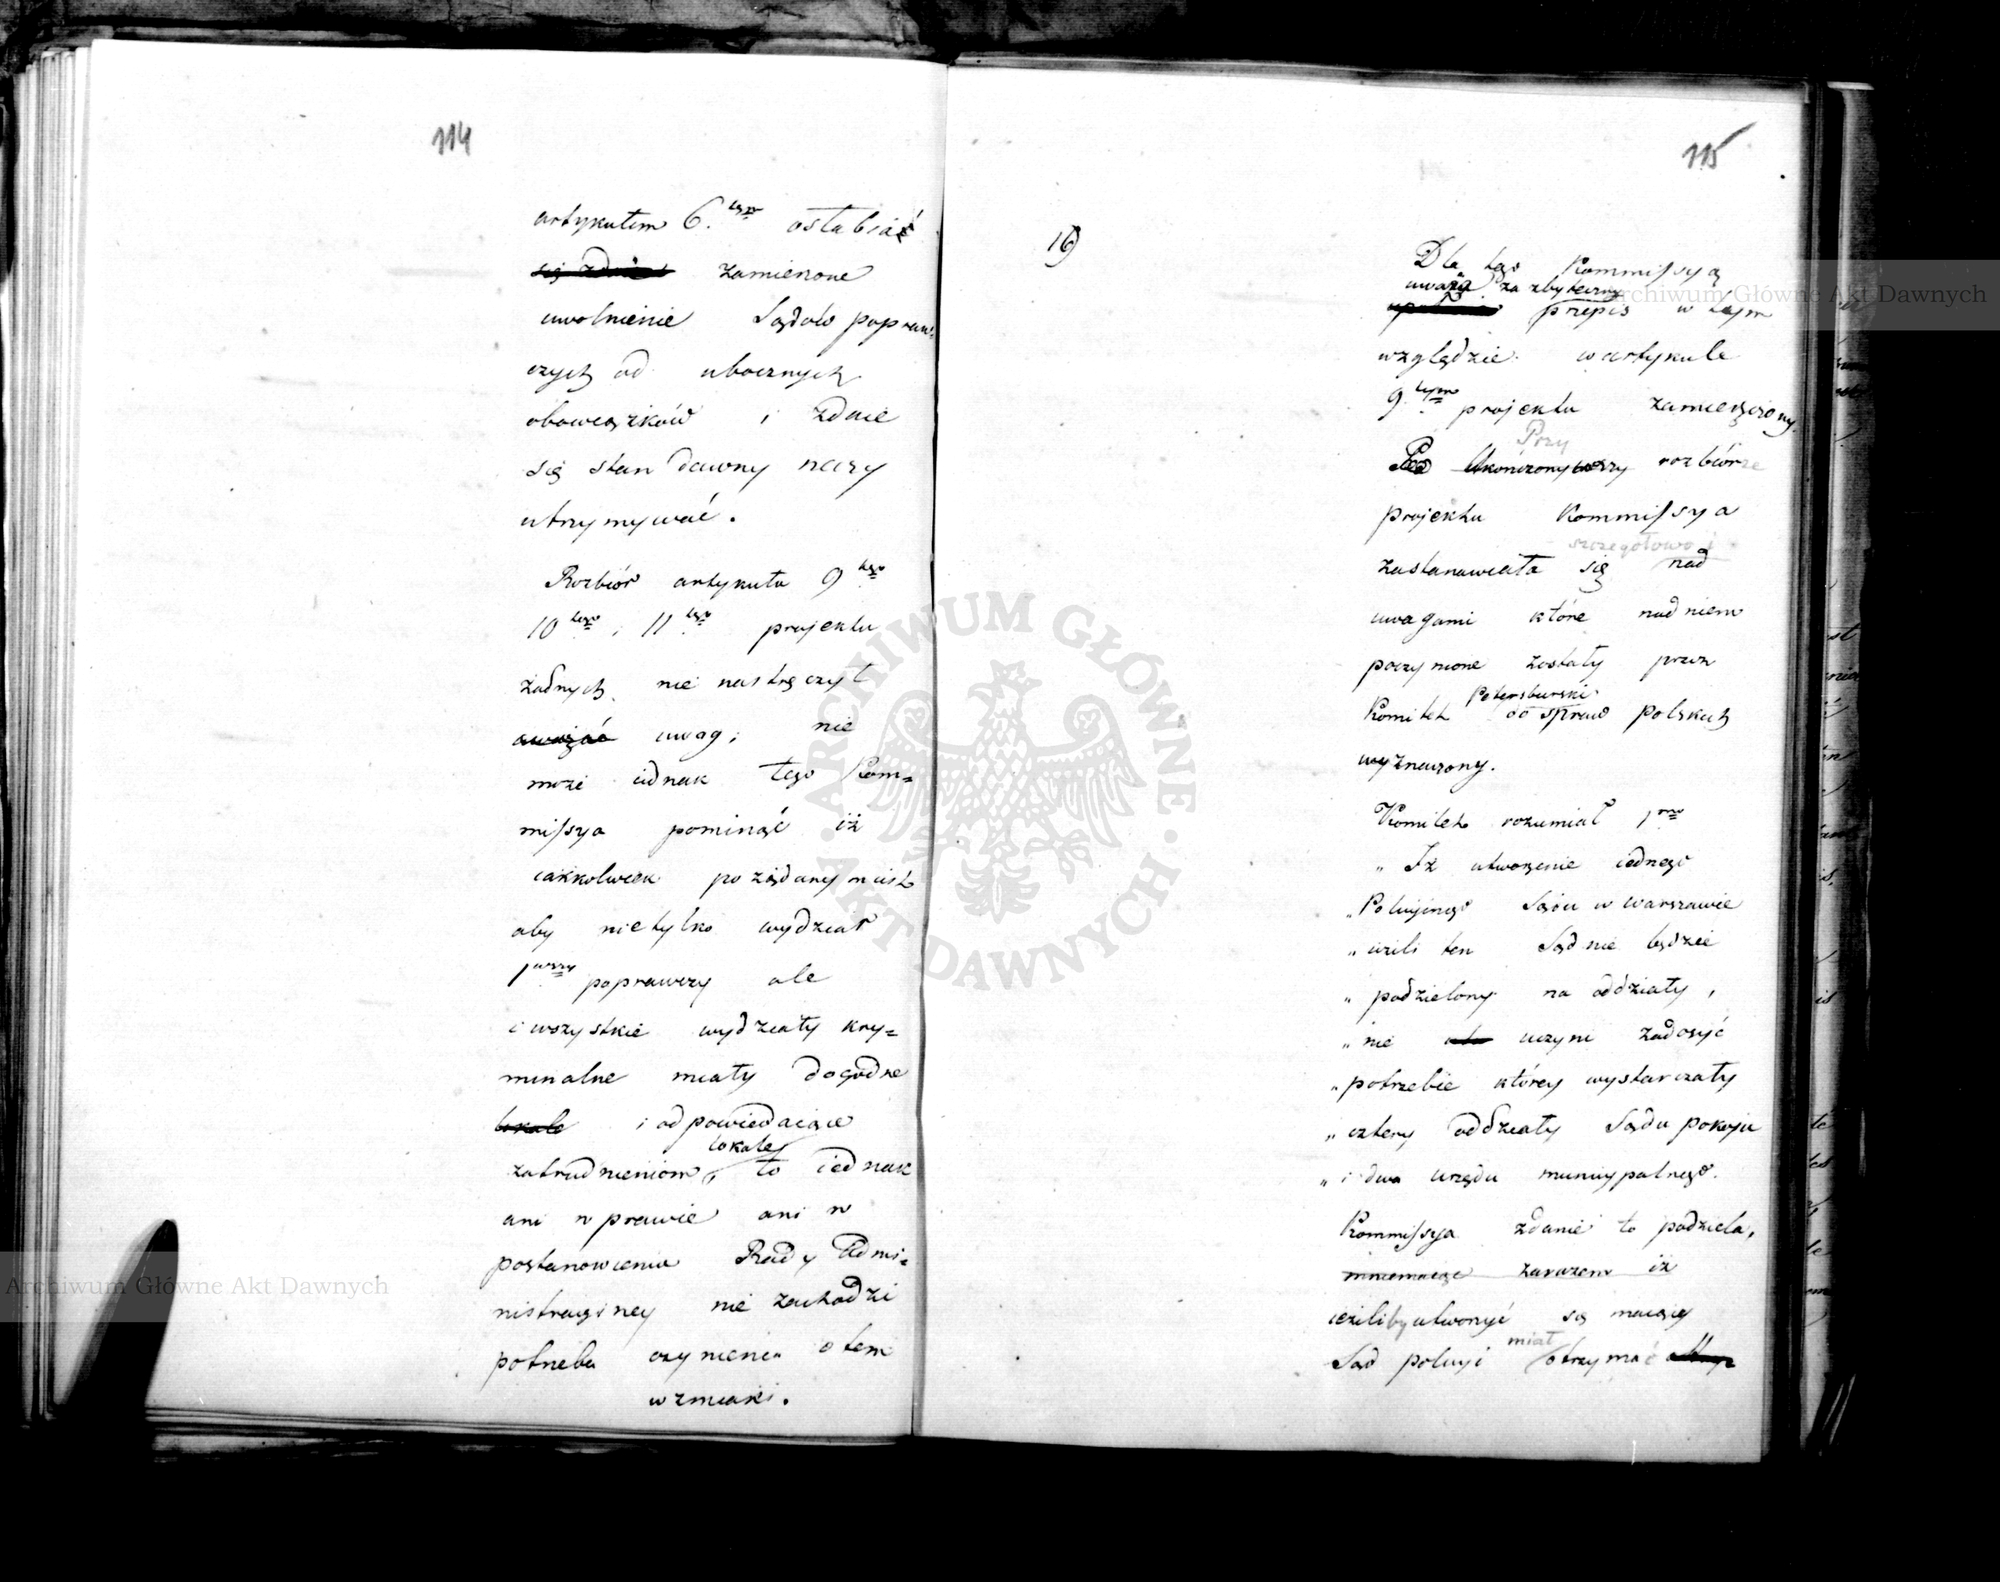 114
artykułem 6.tego osłabiać
zamierzone
uwolnienie Sądów popraw-
czych od ubocznych
obowiązków i zdaie
się stan dawny raczy
utrzymywać.
Rozbiór artykułu 9tego
10tego i 11tego projektu
żadnych nie nastręczył
uważać uwag; nie
może iednak tego Kom=
missya pominąć iż
iakkolwiek pożądanym iest
aby nietylko wydział
1wszy poprawczy ale
i wszystkie wydziały kry=
minalne miały dogodne
lokale i odpowiedaiące
lokale
zatrudnieniom, to iednak
ani w prawie ani w
postanowieniu Rady Admi=
nistracyiney nie zachodzi
potrzeba czynienia o tem
wzmianki.
115
16)
Dla tego Kommissya
uważa za zbyteczny
przepis w tym
względzie w artykule
9tym projektu zamieszczony.
Przy
Po Ukończonym rozbiorze
projektu Kommissya
szczegółowo i
zastanawiała się nad
uwagami które nad niem
poczynione zostały przez
Petersburski
Komitet do spraw polskich
wyznaczony.
Komitet rozumiał 1mo
„ Iż utworzenie iednego
„ Policyinego Sądu w Warszawie
„ ieżeli ten Sąd nie będzie
„ podzielony na oddziały,
„ nie uczyni zadosyć
„ potrzebie którey wystarczały
„ cztery oddziały Sądu pokoju
„ i dwa urzędu municypalnego.
Kommissya zdanie to podziela,
mniemaiąc zarazem iż
ieżeliby utworzyć się maiący
miał
Sąd policyi otrzymać
Archiwum Główne Akt Dawnych
Archiwum Główne Akt Dawnych
ARCHIWUM GŁÓWNE AKT DAWNYCH